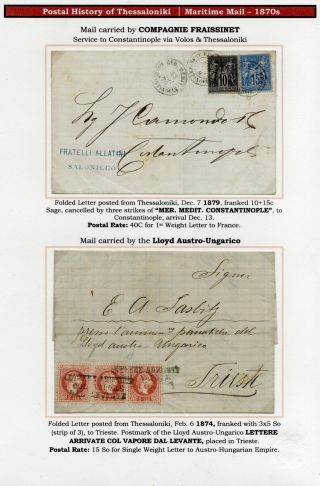 Postal History of Thessaloniki | Maritime Mail – 1870s
Mail carried by COMPAGNIE FRAISSINET
Service to Constantinople via Volos & Thessaloniki
10
Sig J. Camondo &
Constantinople
FRATELLI ALLATINI
SALONICCO
Folded Letter posted from Thessaloniki, Dec. 7 1879, franked 10+15c
Sage, cancelled by three strikes of "MER. MEDIT. CONSTANTINOPLE", to
Constantinople, arrival Dec. 13.
Postal Rate: 40C for 1st Weight Letter to France.
Mail carried by the Lloyd Austro-Ungarico
Signor
E A
presso l'
Lloyd austro Ungarico
Trieste
Folded Letter posted from Thessaloniki, Feb. 6 1874, franked with 3x5 So
(strip of 3), to Trieste. Postmark of the Lloyd Austro-Ungarico LETTERE
ARRIVATE COL VAPORE DAL LEVANTE, placed in Trieste.
Postal Rate: 15 So for Single Weight Letter to Austro-Hungarian Empire.